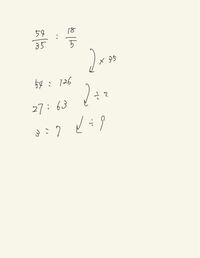 54/35 : 18/5
× 35
54 : 126
÷ 2
27 : 63
÷ 9
3 : 7